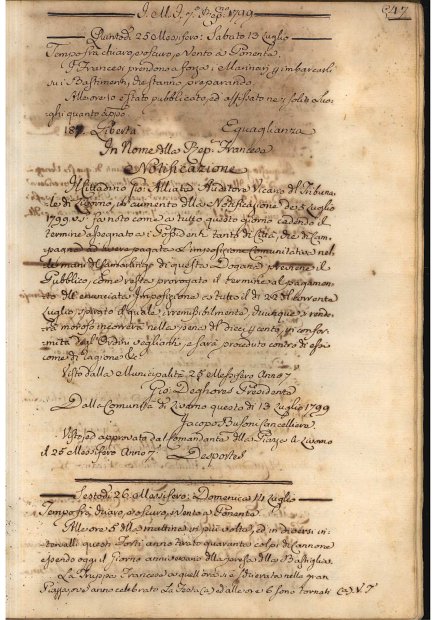 J. M. J. 7.° Rep.no 1799
47
Quintodì 25 Messifero: Sabato 13 Luglio
Tempo fra chiaro, e oscuro, e Vento a Ponente
I Francesi prendono a forza i Marinari, p imbarcarli
sui Bastimenti, che stanno preparando.
Alle ore 10 è stato pubblicato, ed affissato ne' soliti Luo-
ghi quanto app.o
187. Libertà Eguaglianza
In Nome della Rep. Francese
Notificazione
Il Cittadino Gio: Alliata Auditore Vicario del Tribuna-
le di Livorno, in aumento della Notificazione de' 5 Luglio
1799 v. s. fa noto come a tutto questo giorno cadendo il
termine assegnato ai Possidenti tanto di Città, che di Cam-
pagna ad avere pagata l'Imposizione Comunitativa nel-
le mani del Camarlingo di questa Dogana, previene il
Pubblico, come resta prorogato il termine al pagamento
dell'enunciata Imposizione a tutto il dì 22 del corrente
Luglio, spirato il quale irremisibilmente, chiunque si rende-
rà moroso incorrerà nella pena del Dieci p cento, in confor-
mità degl'Ordini veglianti, e sarà proceduto contro di essi
come di ragione &c
Visto dalla Municipalità 25 Messifero Anno 7
Gio. Deghores Presidente
Dalla Comunità di Livorno questo dì 13 Luglio 1799
Jacopo Busoni Cancelliere
Visto ed approvato dal Comandante della Piazza di Livorno
il 25 Messifero Anno 7.
Desportes
Sestodì 26. Messifero: Domenica 14 Luglio
Tempo fra chiaro, e oscuro, e Vento a Ponente
Alle ore 5 della mattina in più volte, ed in diversi in-
tervalli questi Forti anno tirato quaranta colpi di Cannone
essendo oggi il Giorno anniversario della presa della Bastiglia.
La Truppa Francese a quell'ora si è schierata nella gran
Piazza, ove anno celebrato La Festa (a) ed alle ore 6 sono tornati (a) V. 7